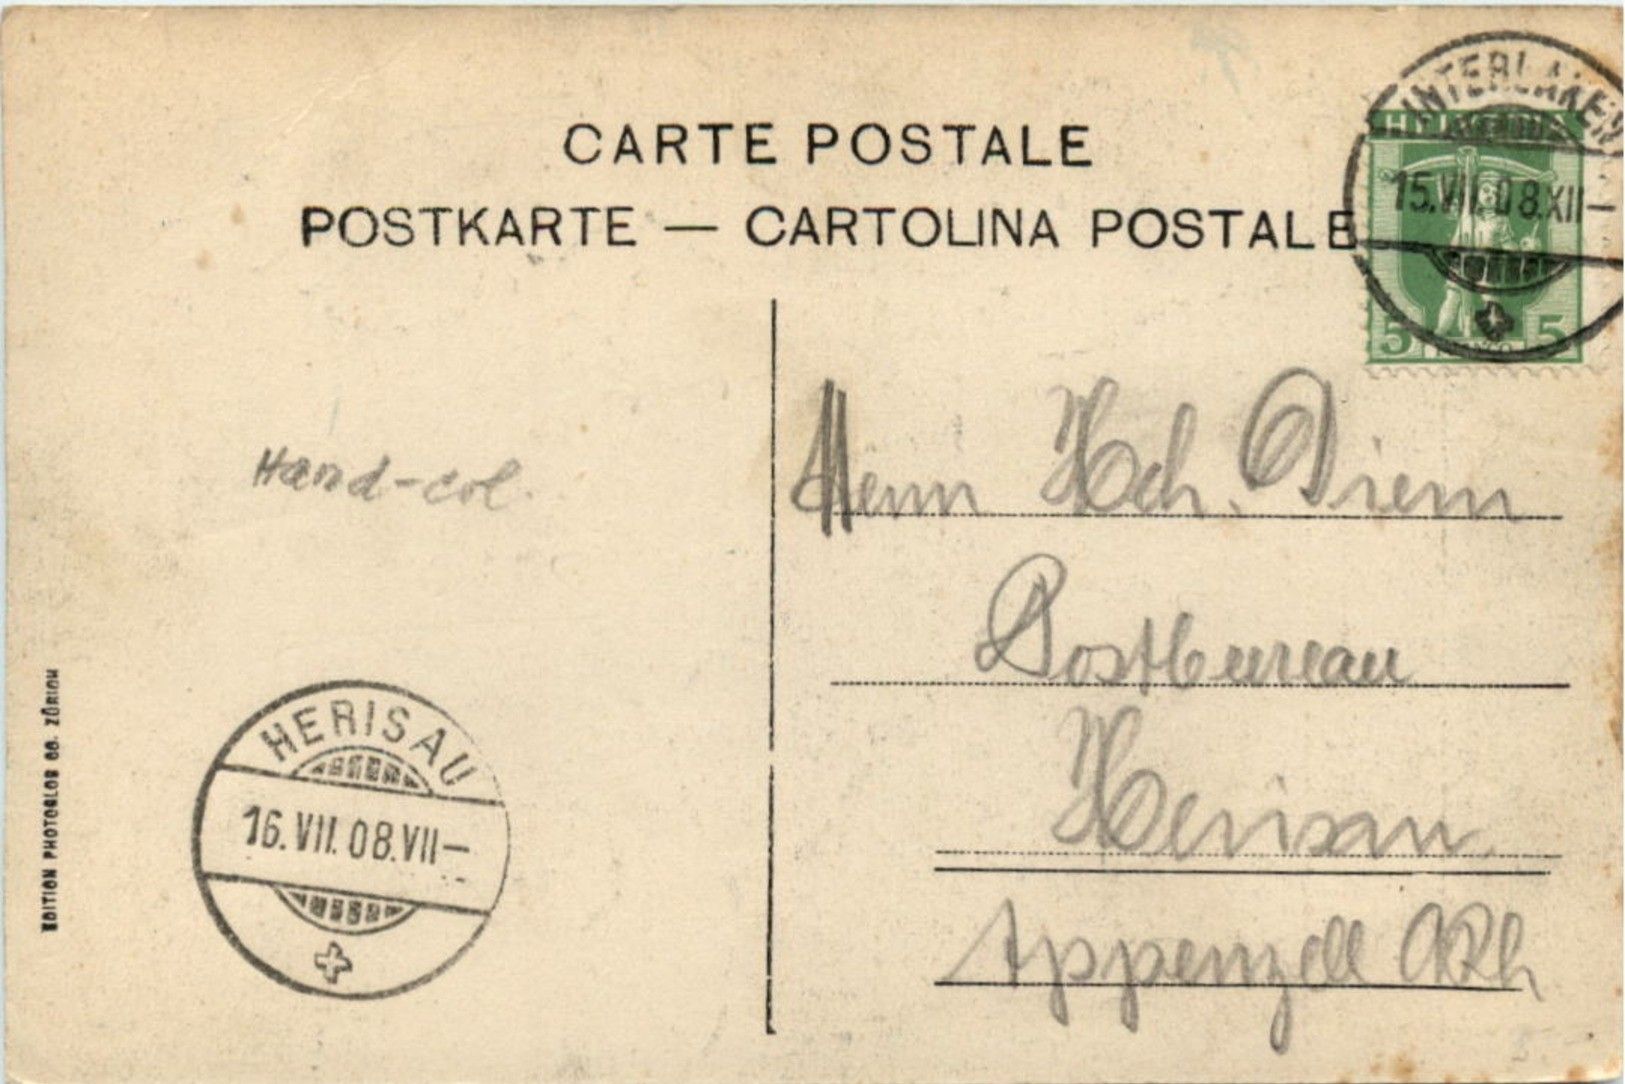 CARTE POSTALE
POSTKARTE — CARTOLINA POSTALE
INTERLAKEN
HELVETIA
15.VII.08.XII—
5 5
Hand-col.
Herrn Hch. Diem
Postbureau
Herisau
Appenzell ARh
HERISAU
16.VII.08.VII—
EDITION PHOTOGLOB CO. ZÜRICH